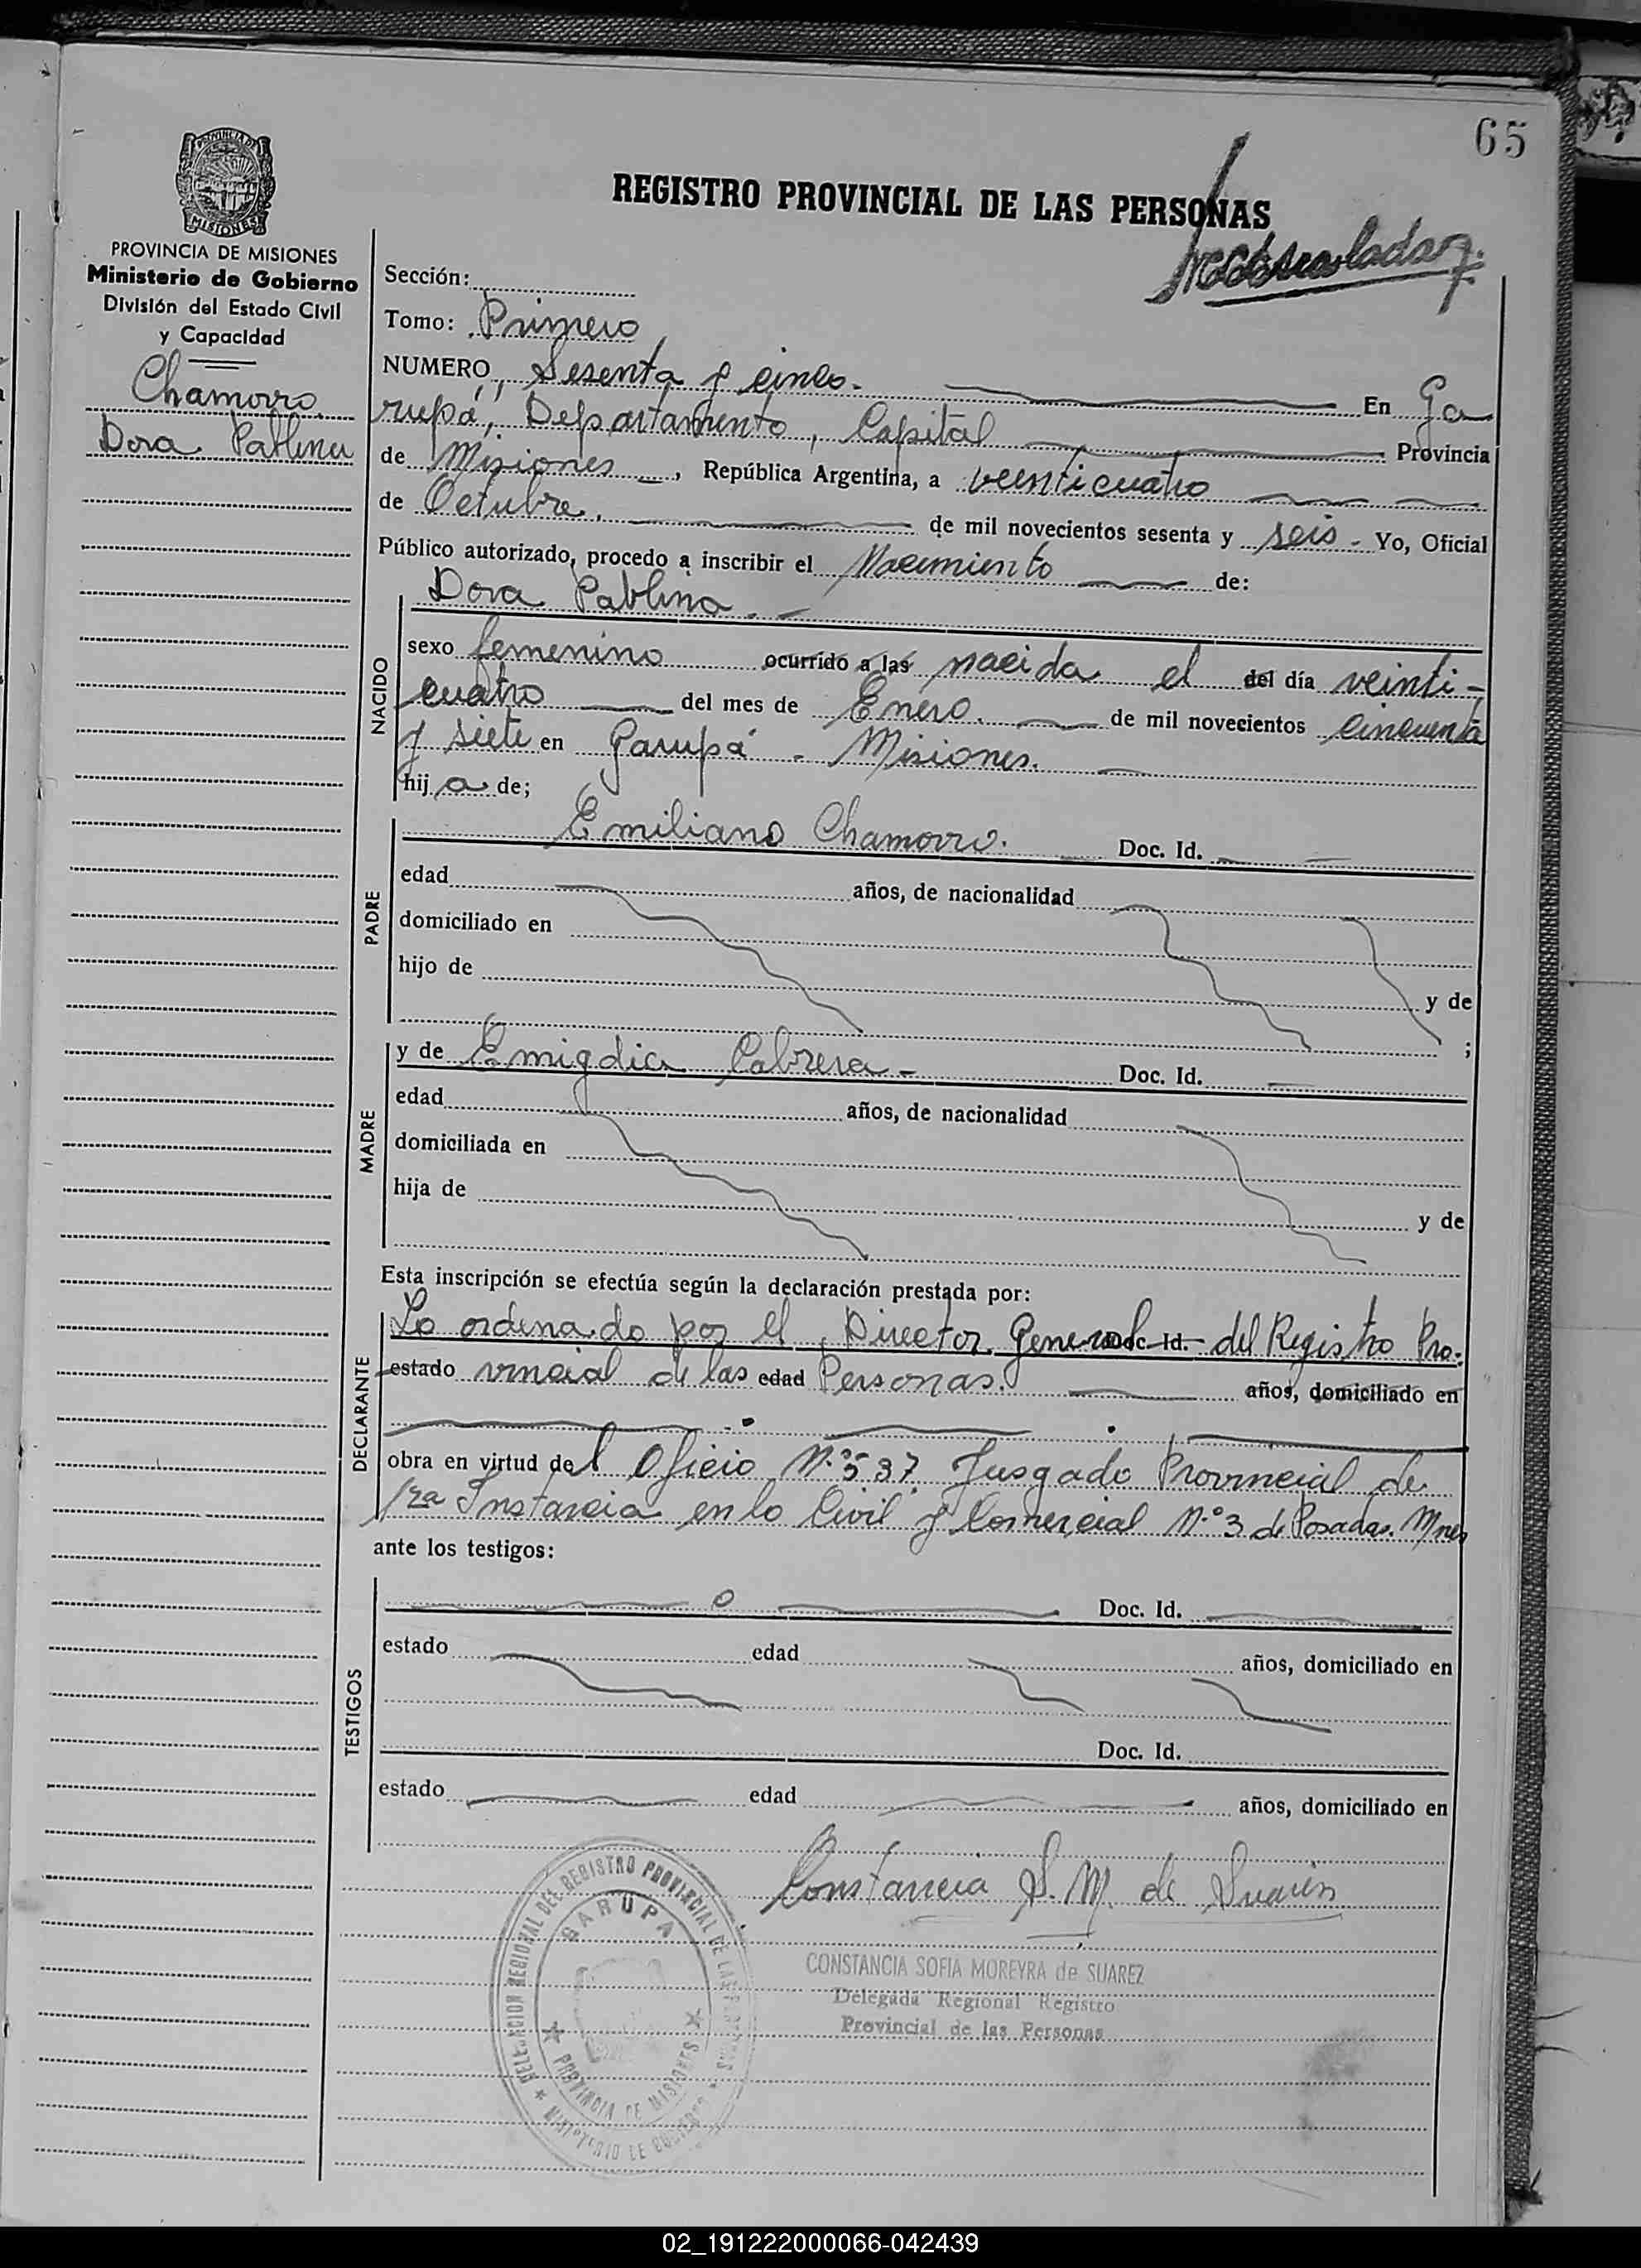 65
PROVINCIA DE
MISIONES
REGISTRO PROVINCIAL DE LAS PERSONAS
PROVINCIA DE MISIONES
Ministerio de Gobierno
División del Estado Civil
y Capacidad
Chamorro
Dora Pablina
Sección:
Tomo: Primero
NUMERO, Sesenta y cinco. En Ga
rupá, Departamento, Capital Provincia
de Misiones, República Argentina, a veinticuatro
de Octubre. de mil novecientos sesenta y seis - Yo, Oficial
Público autorizado, procedo a inscribir el Nacimiento de:
Dora Pablina. -
NACIDO
sexo femenino ocurrido a las nacida el del día veinti-
cuatro del mes de Enero. de mil novecientos cincuenta
y siete en Garupá - Misiones.
hija de;
PADRE
Emiliano Chamorro. Doc. Id.
edad años, de nacionalidad
domiciliado en
hijo de y de
;
MADRE
y de Emigdia Cabrera - Doc. Id.
edad años, de nacionalidad
domiciliada en
hija de y de
Esta inscripción se efectúa según la declaración prestada por:
DECLARANTE
Lo ordenado por el Director General Doc. Id. del Registro Pro-
estado vincial de las edad Personas. años, domiciliado en
obra en virtud del Oficio N.º 537 Jusgado Provincial de
1ra Instancia en lo Civil y Comercial N.º 3 de Posadas. Mnes
ante los testigos:
TESTIGOS
Doc. Id.
estado edad años, domiciliado en
Doc. Id.
estado edad años, domiciliado en
Constancia S. M. de Suarez
CONSTANCIA SOFIA MOREYRA de SUAREZ
Delegada Regional Registro
Provincial de las Personas
DELEGACION REGIONAL DEL REGISTRO PROVINCIAL DE LAS PERSONAS
GARUPA
PROVINCIA DE MISIONES
MINISTERIO DE GOBIERNO
02_191222000066-042439